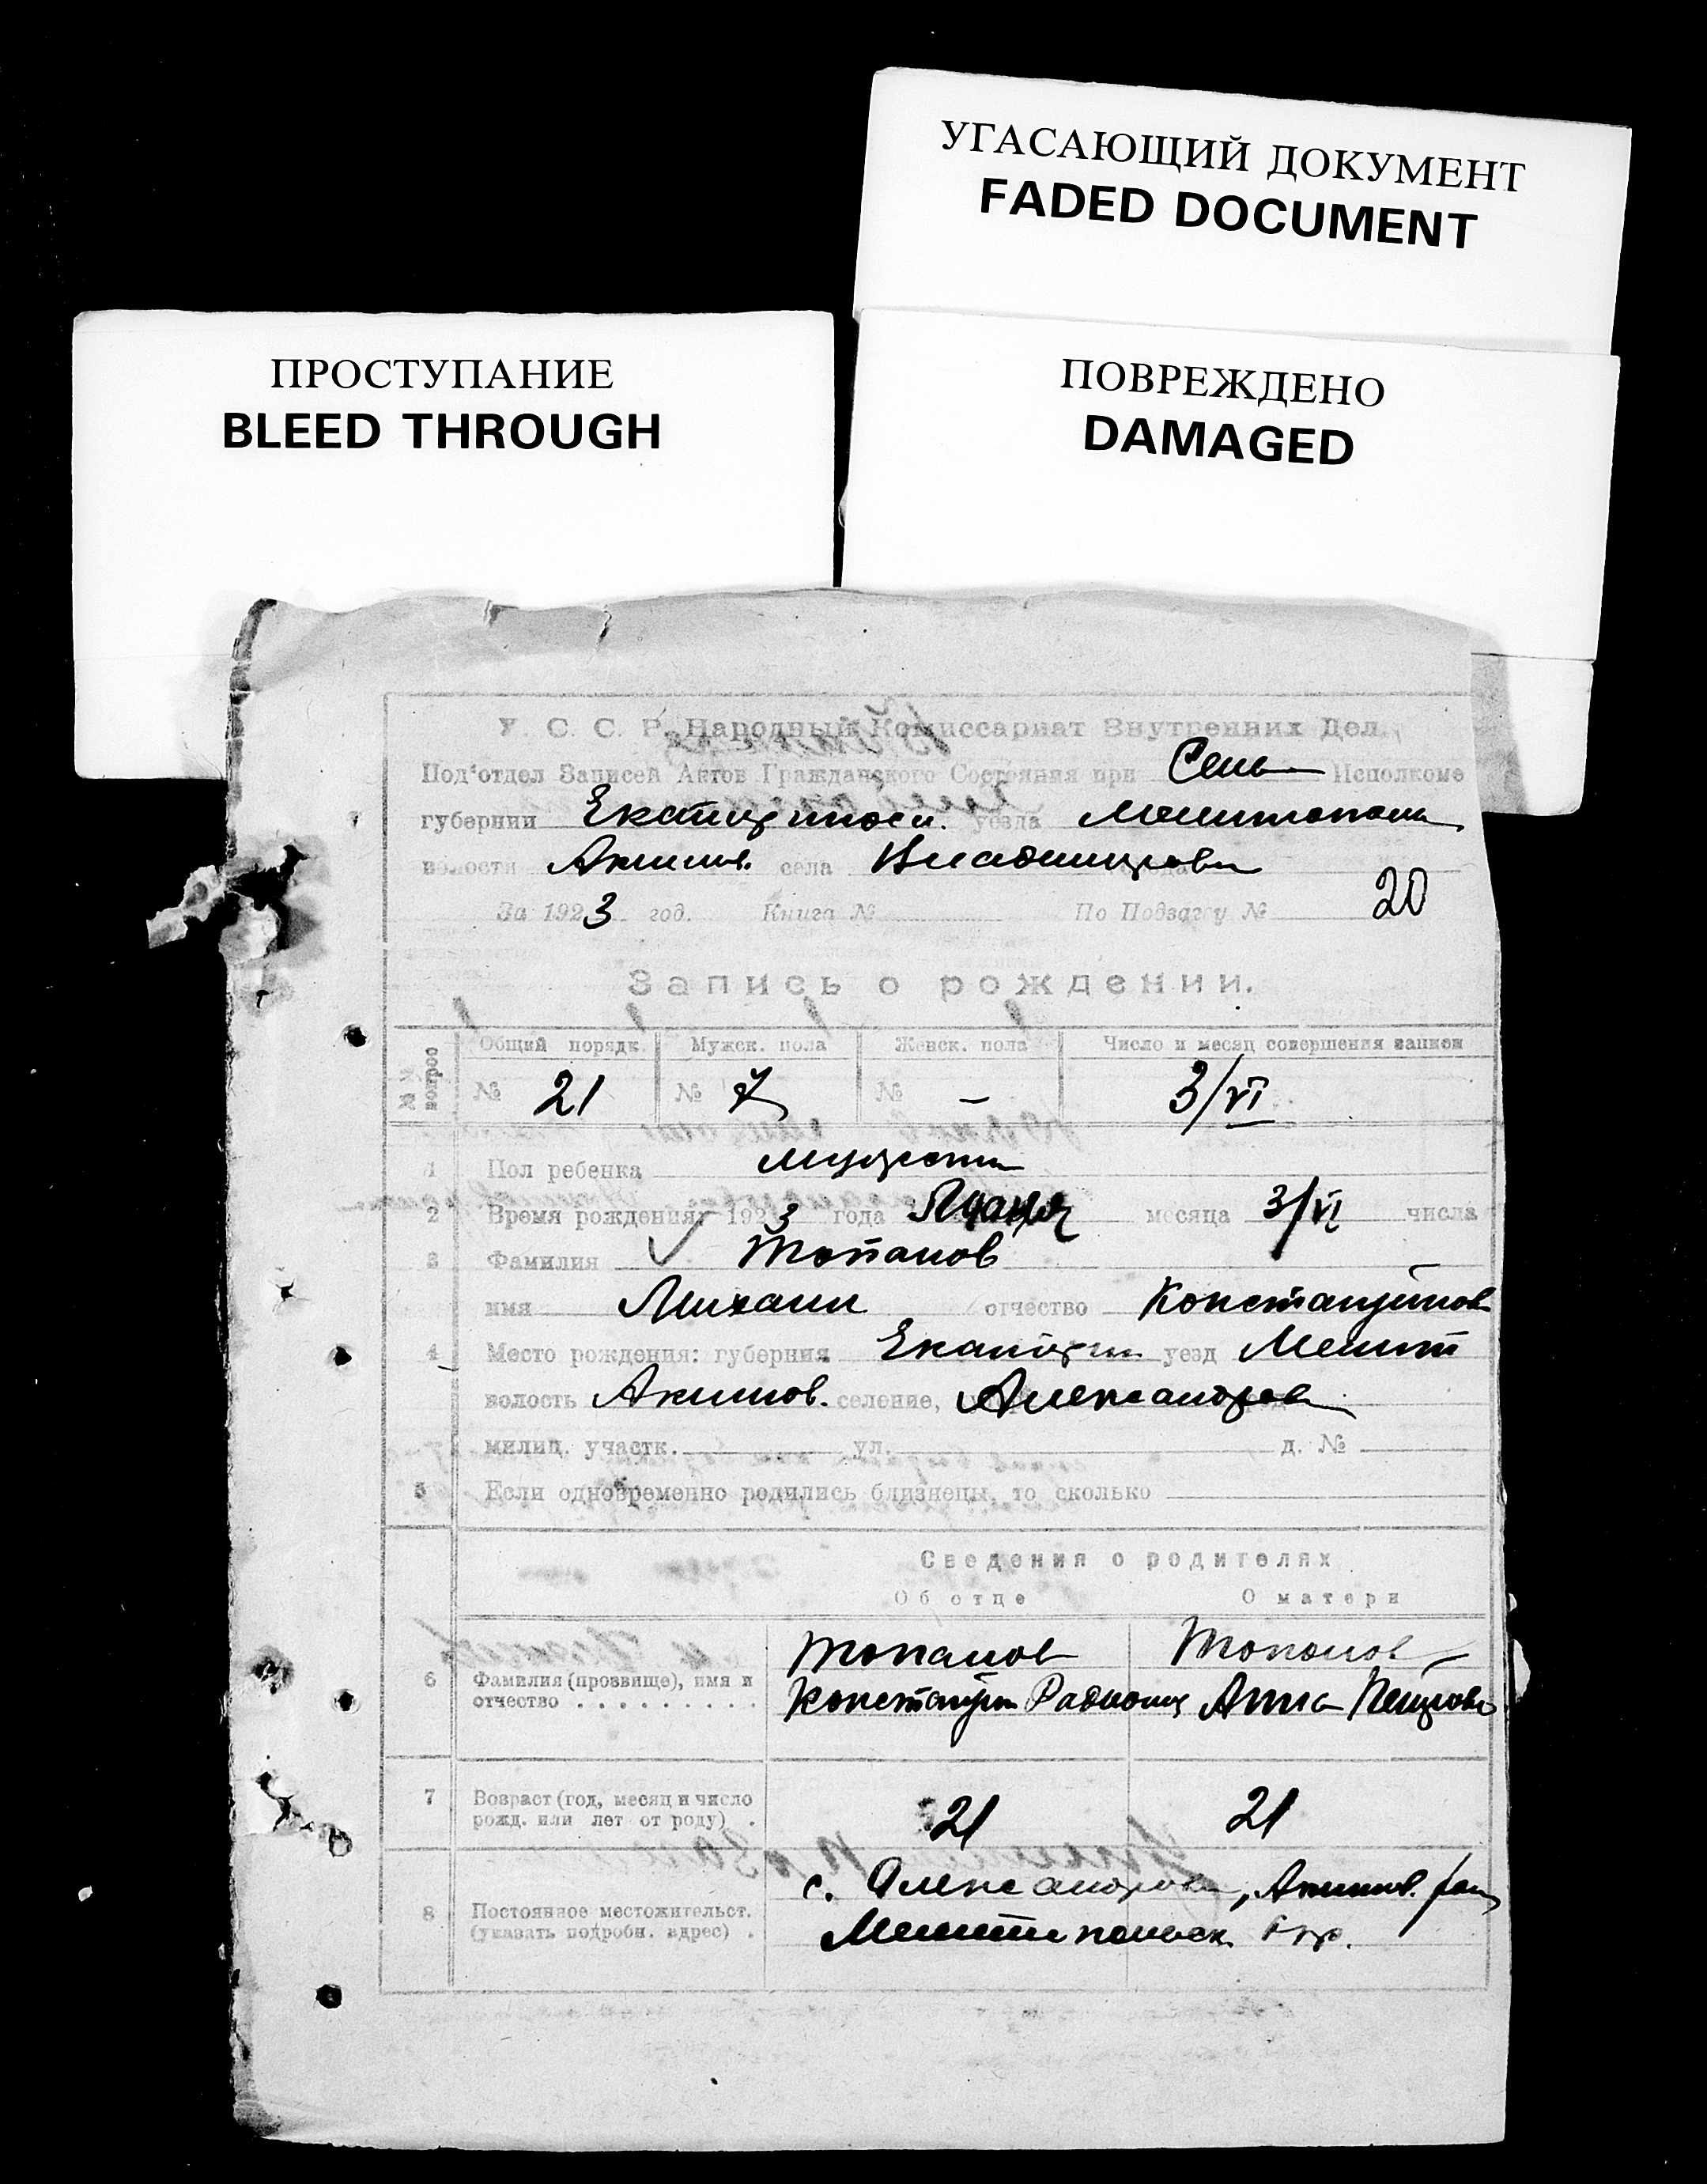 УГАСАЮЩИЙ ДОКУМЕНТ
FADED DOCUMENT
ПРОСТУПАНИЕ
BLEED THROUGH
ПОВРЕЖДЕНО
DAMAGED
У. С. С. Р. Народный Комиссариат Внутренних Дел.
Под'отдел Записей Актов Гражданского Состояния при Сель Исполкоме
губернии уезда
волости Акимов. села Владимировк
За 1923 год. Книга № По Подзагсу № 20
Запись о рождении.
№№ вопрос
Общий порядк. Мужск. пола Женск. пола Число и месяц совершения записи
№ 21 № 7 № – 3/VI
1 Пол ребенка
2 Время рождения: 1923 года месяца 3/VI числа
3 Фамилия Топалов
имя Михаил отчество Константинов
4 Место рождения: губерния Екатерин уезд Мелит
волость Акимов. селение, Александров
милиц. участк. ул. д. №
5 Если одновременно родились близнецы, то сколько
Сведения о родителях
Об отце О матери
6 Фамилия (прозвище), имя и Топалов Топалов
отчество . . . . . . . . . Константин Анна Петровн
7 Возраст (год, месяц и число
рожд. или лет от роду) . 21 21
8 Постоянное местожительст. с. Александровк, Акимов.
(указать подробн. адрес) . Мелитопольск